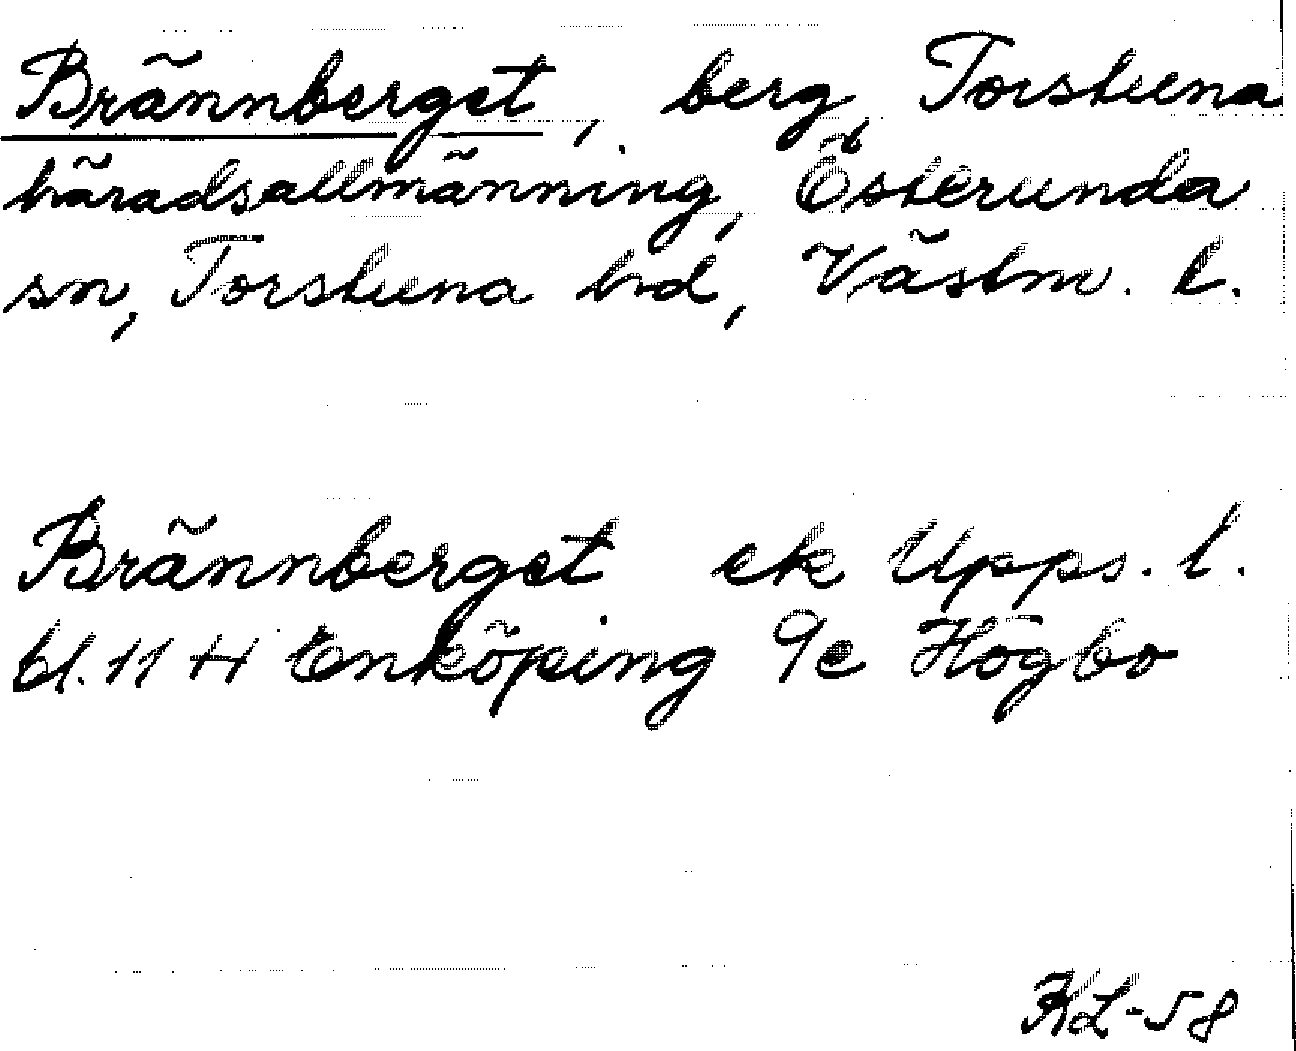 Brännberget, berg, Torstuna
häradsallmänning, Österunda
sn, Torstuna hd, Västm. l.
Brännberget ek Upps. l.
bl. 11 H Enköping 9e Högbo
KL-58